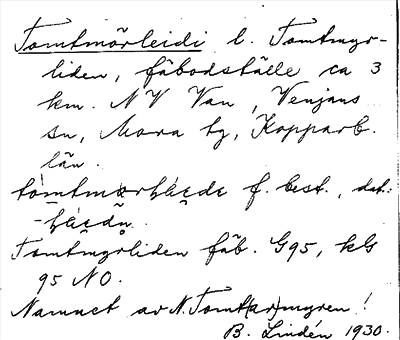 Tomtmörleidi l. Tomtmyr-
liden, fäbodställe ca 3
km. NV Van, Venjans
sn, Mora tg, Kopparb.
län.
f. best., dat.:
Tomtmyrliden fäb. G95, kbl
95 NO.
Namnet av N. Tomt(ar)myren!
B. Lindén 1930.